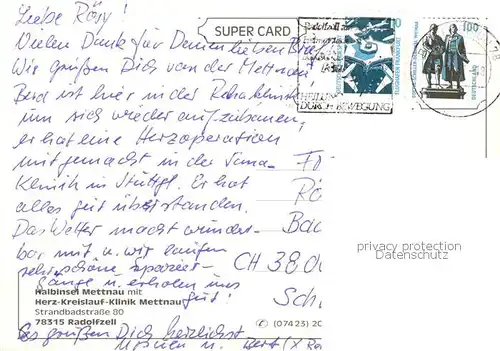 Liebe Rösy!
Vielen Dank für Deinen lieben Brief
Wir grüßen Dich von der Mettnau!
Bert ist hier in der Rehaklinik
um sich wieder aufzubauen,
er hat eine Herzoperation
mitgemacht in der Sana-
Klinik in Stuttg. Er hat
alles gut überstanden.
Das Wetter macht wunder-
bar mit u. wir laufen
sehr schöne Spazier-
gänge u. erholen uns
gut!
Es grüßen Dich herzlichst
u. Bert
SUPER CARD
Radolfzell
HEILUNG
DURCH BEWEGUNG
FLUGHAFEN FRANKFURT
100
DEUTSCHLAND
Ba
CH 38.00
Sch
privacy protection
Datenschutz
Halbinsel Mettnau mit
Herz-Kreislauf-Klinik Mettnau
Strandbadstraße 80
78315 Radolfzell
(07423) 20